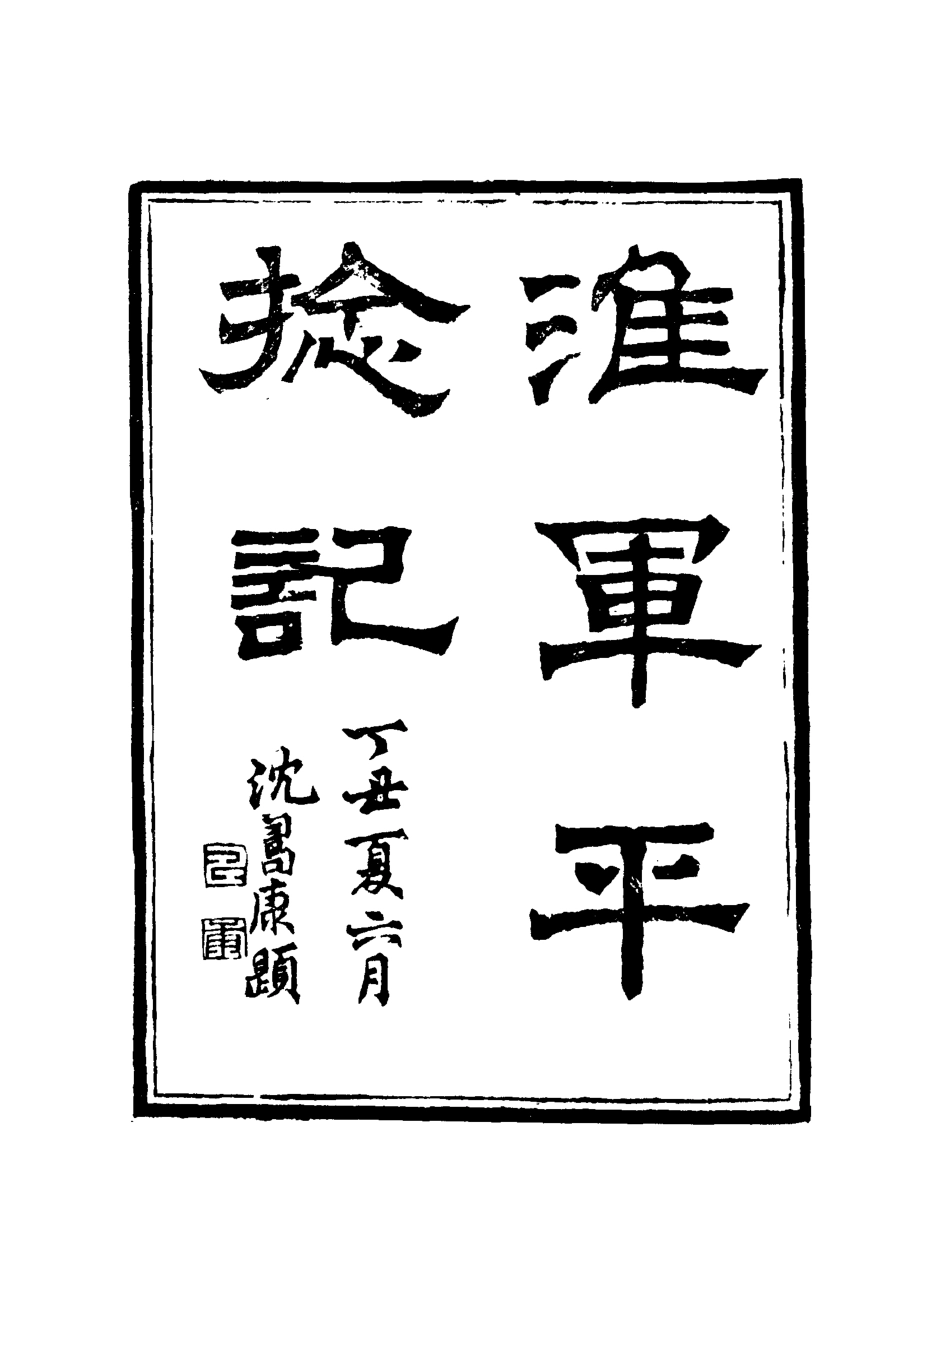 淮軍平
捻記
丁丑夏六月
沈暠康題